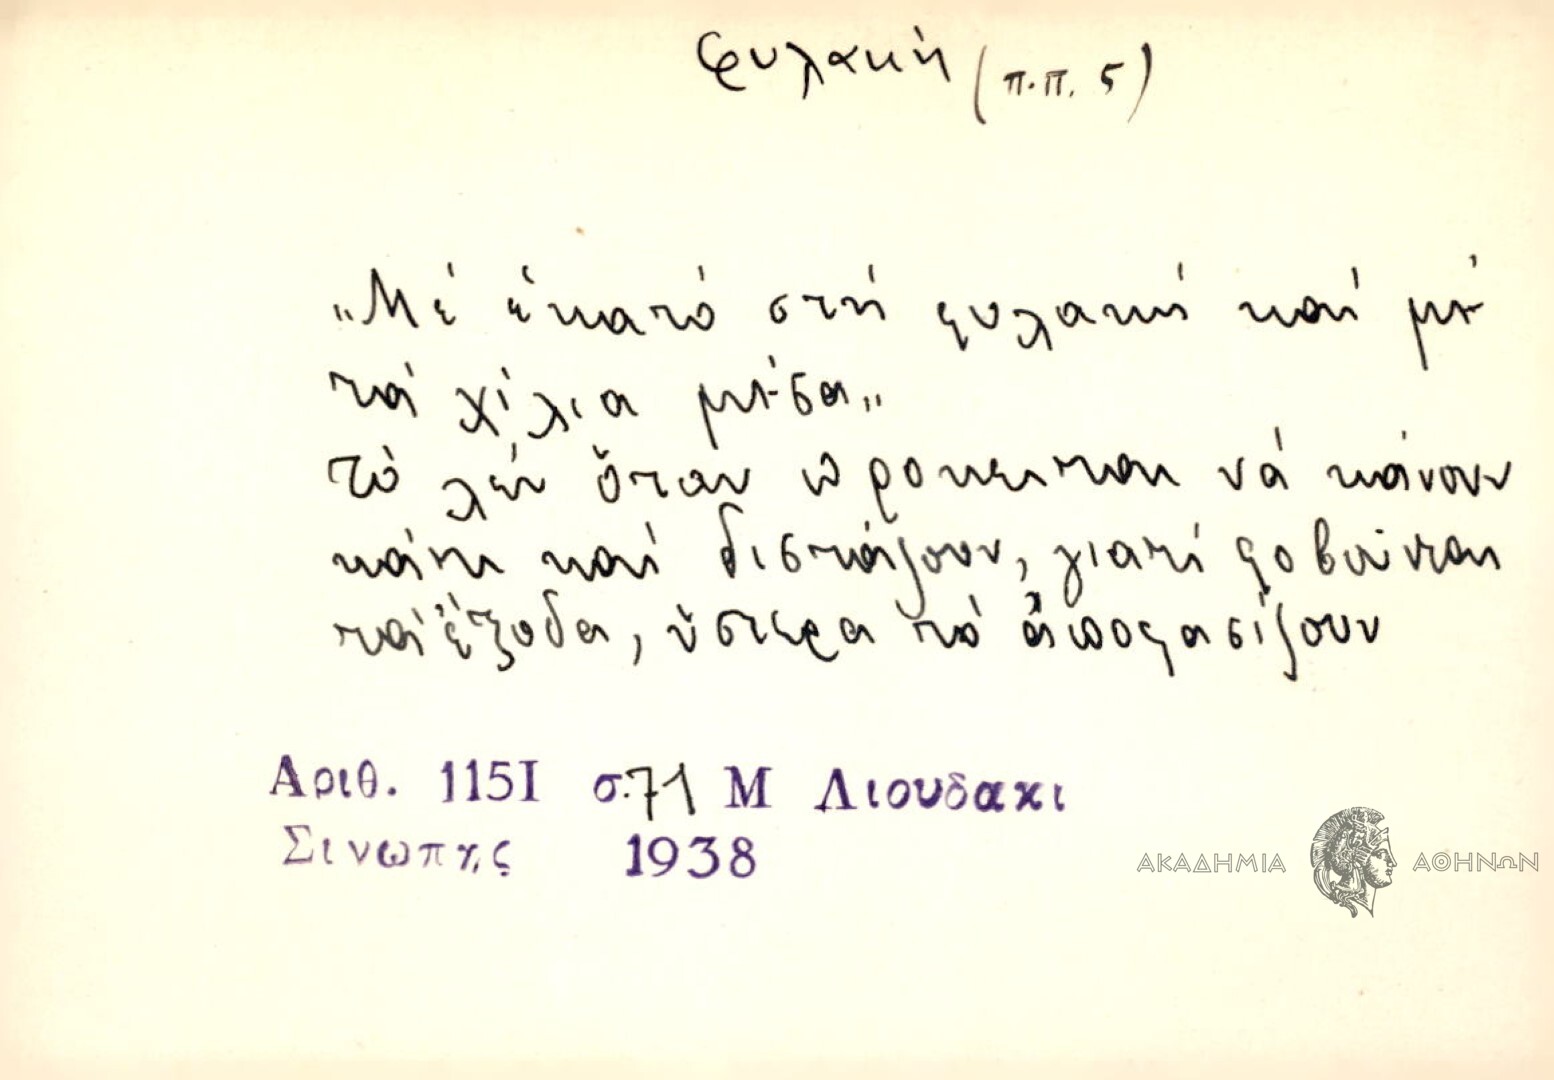 φυλακή (π.π. 5)
„Μέ ἑκατό στή φυλακή καί μέ
τά χίλια μέσα„
Τό λέν ὅταν πρόκειται νά κάνουν
κάτι καί διστάζουν, γιατί φοβοῦνται
τά ἔξοδα, ὕστερα τό ἀποφασίζουν
Αριθ. 1151 σ.71 Μ Λιουδακι
Σινωπης 1938
ΑΚΑΔΗΜΙΑ ΑΘΗΝΩΝ